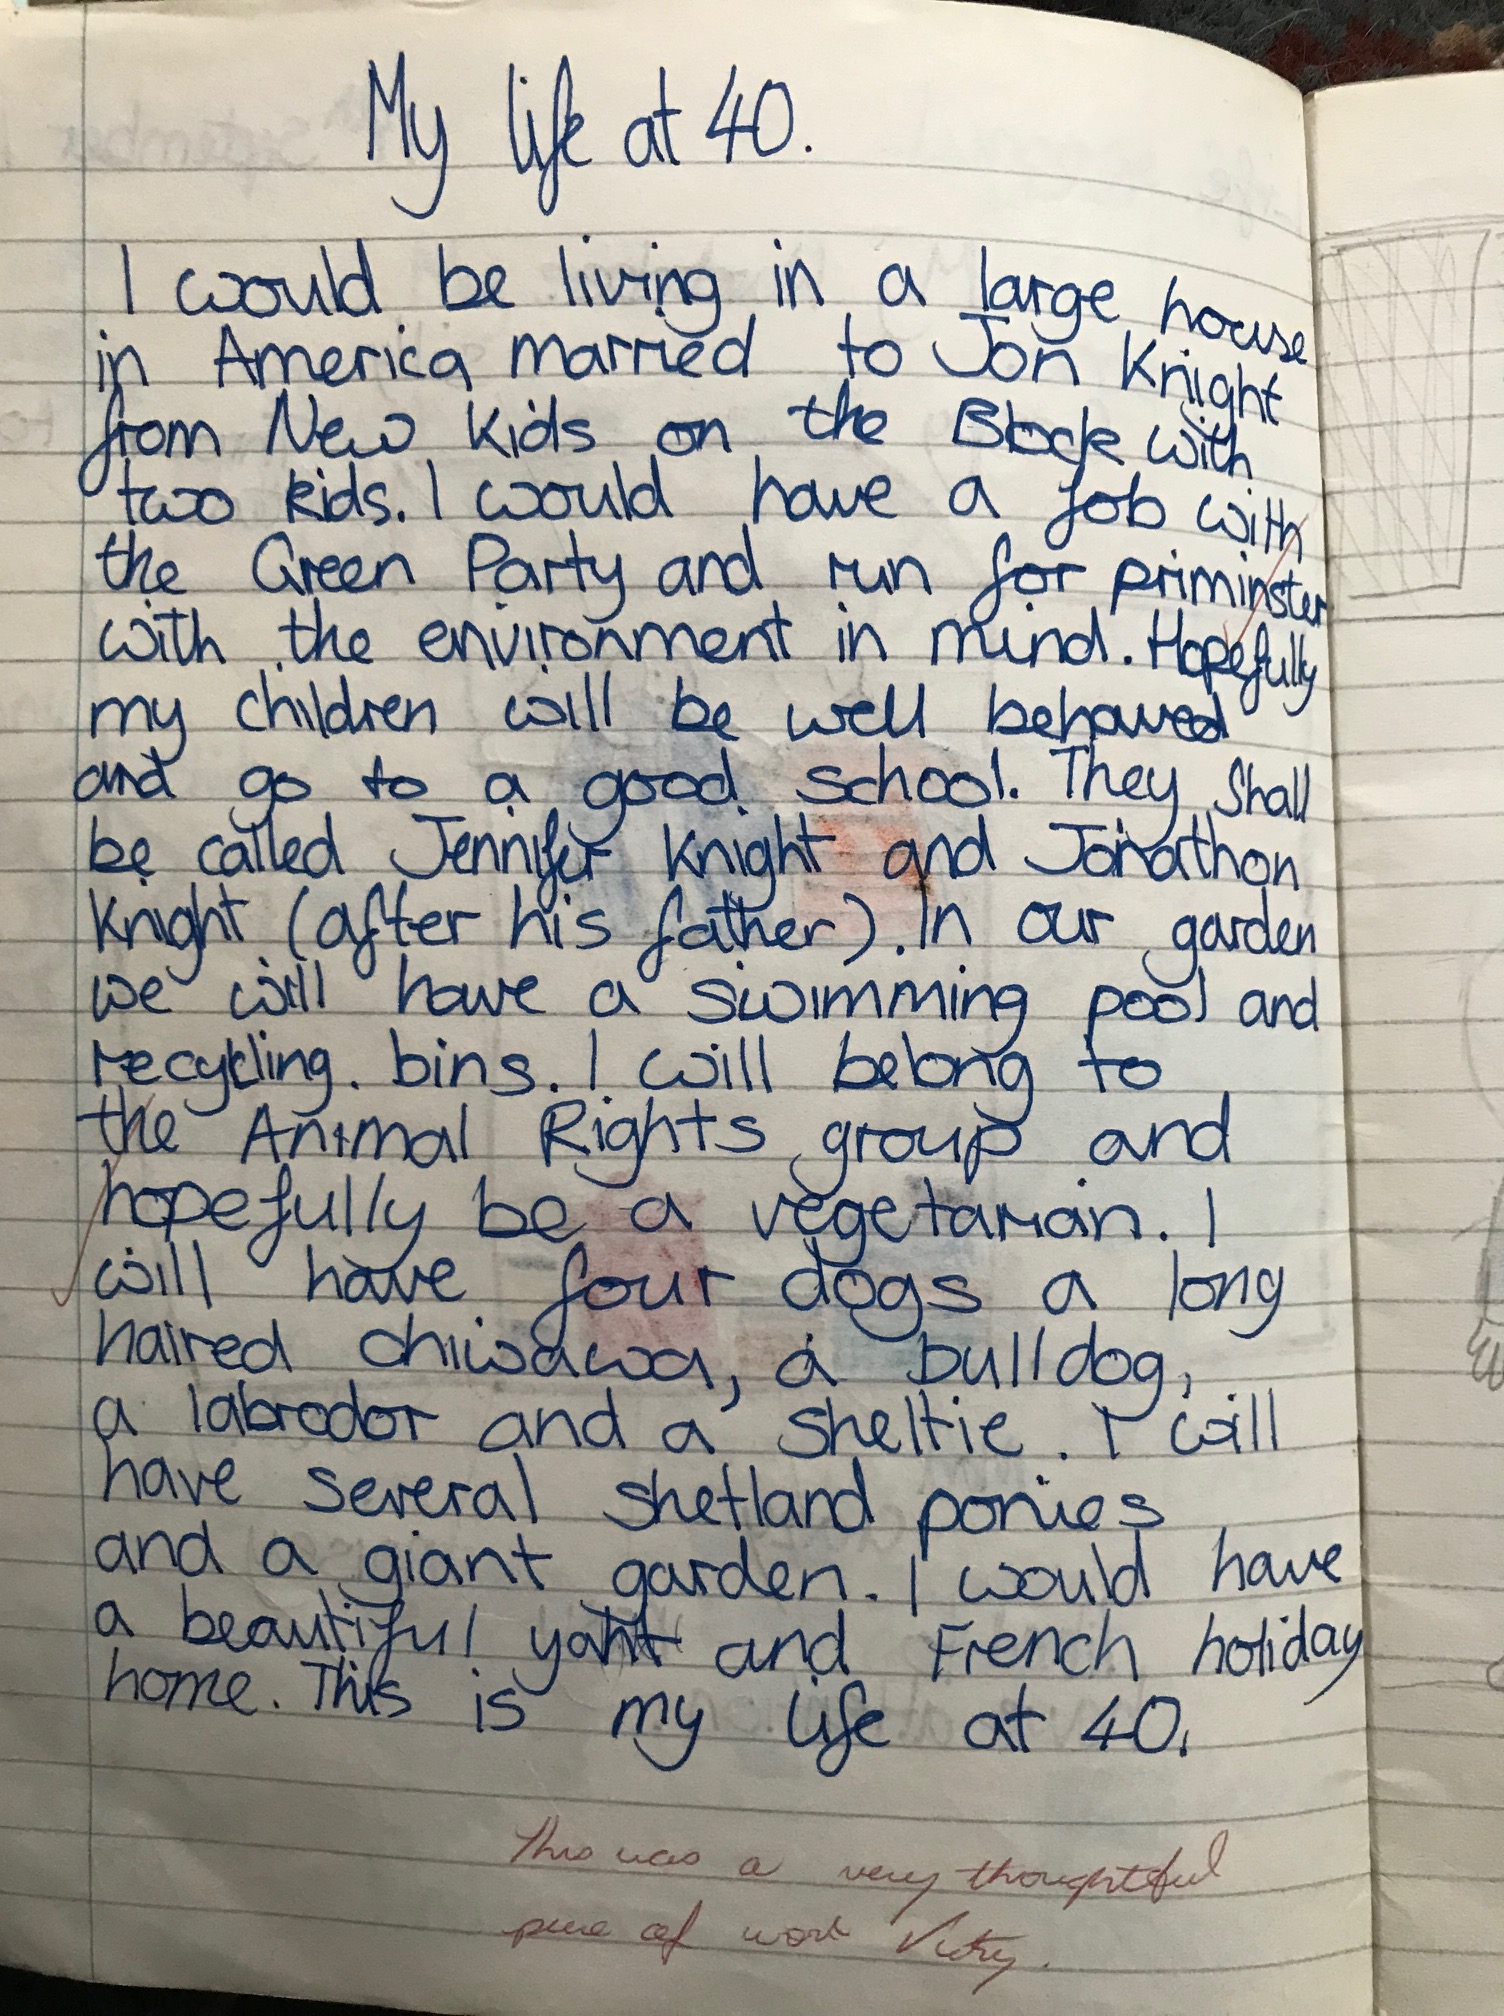 My life at 40.
I would be living in a large house
in America married to Jon Knight
from New Kids on the Block with
two kids. I would have a job with
the Green Party and run for priminster
with the environment in mind. Hopefully
my children will be well behaved
and go to a good school. They shall
be called Jennifer Knight and Jonathon
Knight (after his father). In our garden
we will have a swimming pool and
recycling. bins. I will belong to
the Animal Rights group and
hopefully be a vegetarian. I
will have four dogs a long
haired chiwawa, a bulldog,
a labrador and a sheltie. I will
have several shetland ponies
and a giant garden. I would have
a beautiful yaht and French holiday
home. This is my life at 40.
This was a very thoughtful
piece of work Vicky.